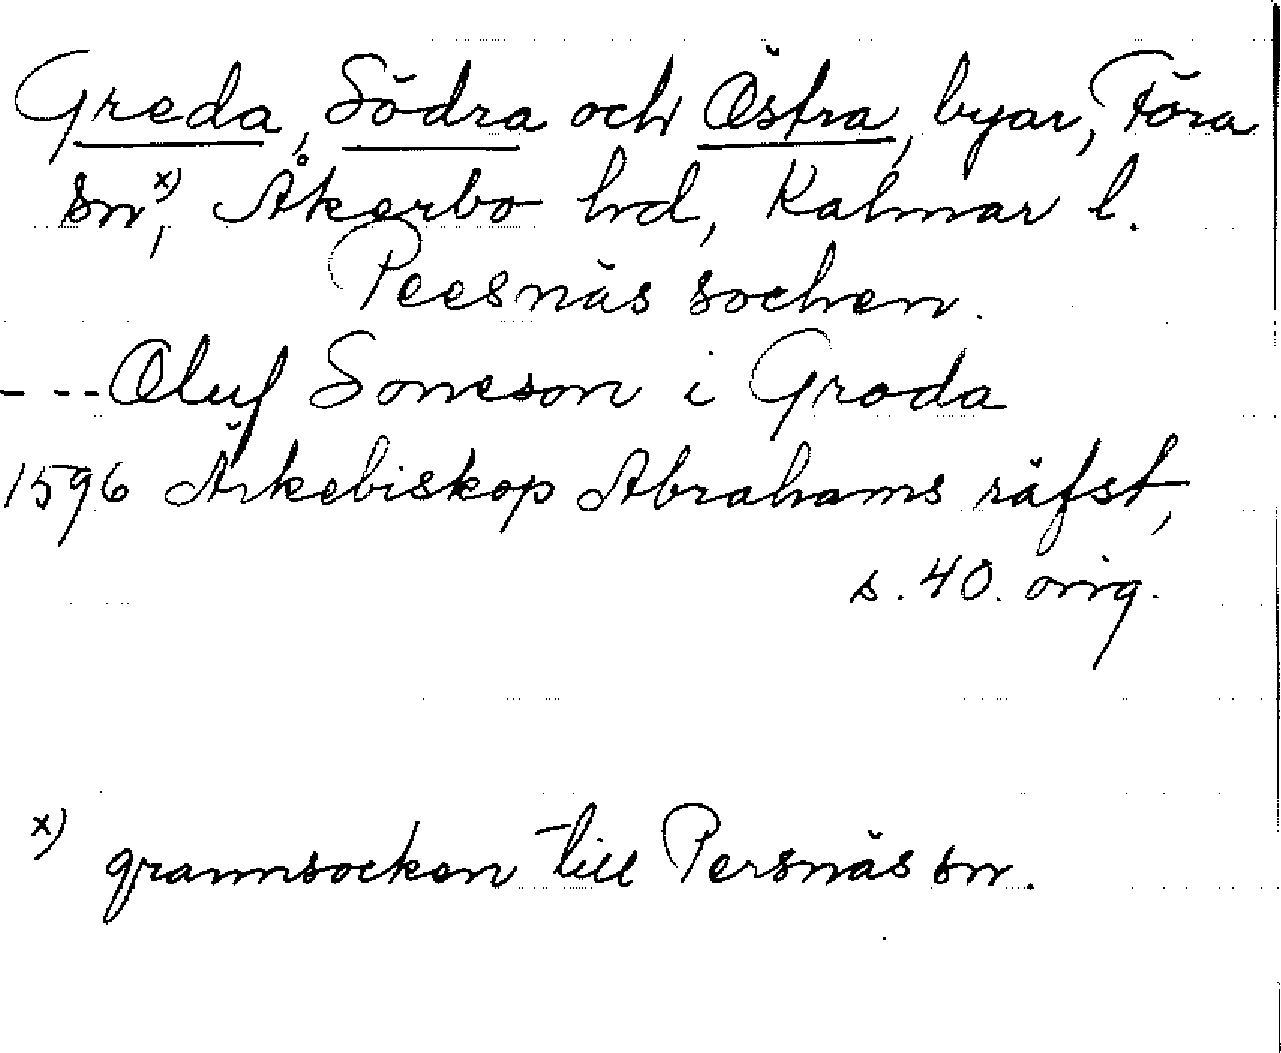 Greda, Södra och Östra, byar, Föra
sn,x) Åkerbo hd, Kalmar l.
Peesnäs sochen.
---Oluf Soneson i Groda
1596 Ärkebiskop Abrahams räfst,
s. 40. orig.
x) grannsocken till Persnäs sn.